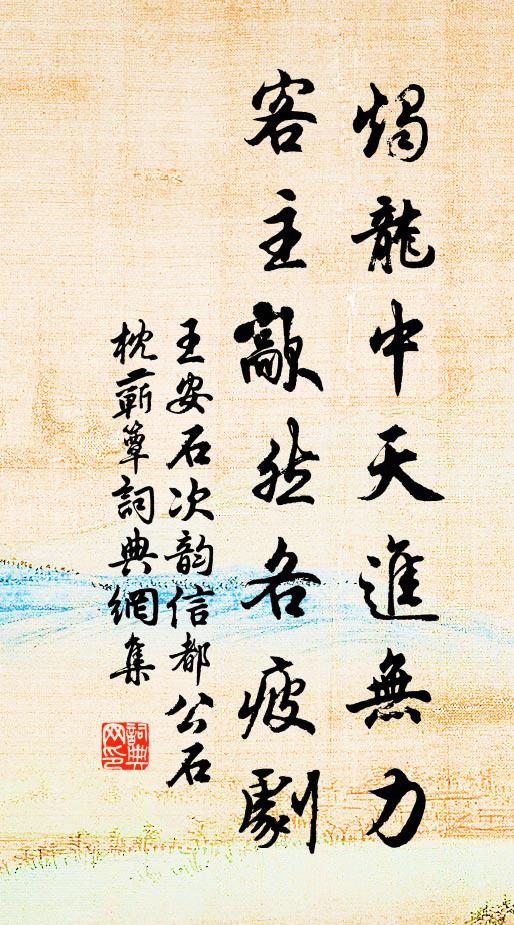 燭龍中天進無力
客主歊然各疲劇
王安石次韵信都公石
枕蘄簟詞典網集
詞典
网印